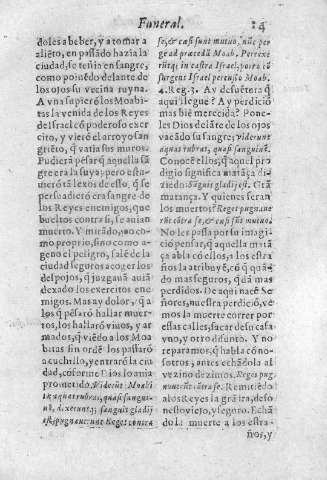 Funeral. 24
doles a beber, y a tomar a
aliẽto, en passãdo hazia la
ciudad, se teñia en sangre,
como poniẽdo delante de
los ojos su vecina ruyna.
A vna sapierõ los Moabi-
tas la venida de los Reyes
de Israel cõ poderoso exer-
cito, y vierõ el arroyo san-
griẽto, q̃ vatia sus muros.
Pudierã pesar q̃ aquella sã
gre era la suya; pero estu-
uierõ tã lexos de esso, q̃ se
persuadierõ era sangre de
los Reyes enemigos, que
bueltos contra si, se auian
muerto. Y mirãdo, no co-
mo proprio, sino como a-
geno el peligro, salẽ de la
ciudad seguros a coger los
despojos, q̃ juzgauã auiã
dexado los exercitos ene-
migos. Mas ay dolor, q̃ a
los q̃ pẽsarõ hallar muer-
tos, los hallarõ viuos, y ar
mados, q̃ viẽdo a los Moa
bitas sin ordẽ los passarõ
a cuchillo, y entrarõ la ciu
dad, cõforme Dios lo auia
prometido. Viderũt Moabi
tæ aquas rubras, quasi sangui-
nẽ, dixerunt; sanguis gladij
est, pugnauẽt Reges contra
se, & cæsi sunt mutuo, nũc per
ge ad prædã Moab. Perrexe
rũtq; in castra Israel, porro cõ
surgens Israel percussio Moab.
4. Reg. 3. Ay desuẽtura q̃
aqui llegue? Ay perdiciõ
mas biẽ merecida? Pone-
les Dios delãte de los ojos
vañado su sangre; Viderunt
aquas rubras, quasi sanguinẽ.
Conocẽ ellos, q̃ aquel pro
digio significa matança di-
ziẽdo: Sãguis gladij est. Grã
matança. Y quienes seran
los muertos? Reges pugnane
rũt cõtra se, & cæsi sũt mutuo.
No les passa por su imagi-
ciõ pensar, q̃ aquella matã
ça abla cõ ellos, a los estra
ños la atribuyẽ, cõ q̃ quã-
do mas seguros, quã mas
perdidos. De aqui nace Se
ñores, nuestra perdiciõ, ve-
mos la muerte correr por
essas calles, sacar de su casa
vno, y otro difunto. Y no
reparamos, q̃ habla cõ no-
sotros, antes echãdola al
vezino dezimos. Reges pug
nauerũt cõtra se. Remitẽdo
a los Reyes la grãira, de so-
nesto viejo, y seguro. Echã
dola la muerte a los estra-
ños, y